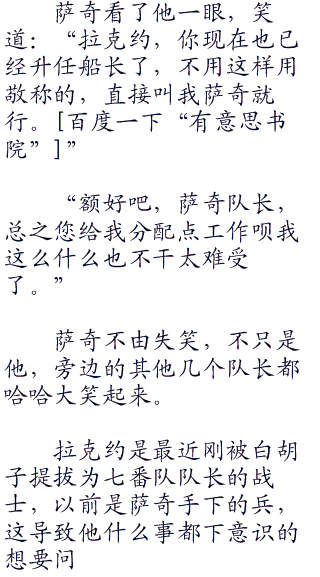 萨奇看了他一眼，笑
道：“拉克约，你现在也已
经升任船长了，不用这样用
敬称的，直接叫我萨奇就
行。[百度一下“有意思书
院”]”
“额好吧，萨奇队长，
总之您给我分配点工作呗我
这么什么也不干太难受
了。”
萨奇不由失笑，不只是
他，旁边的其他几个队长都
哈哈大笑起来。
拉克约是最近刚被白胡
子提拔为七番队队长的战
士，以前是萨奇手下的兵，
这导致他什么事都下意识的
想要问